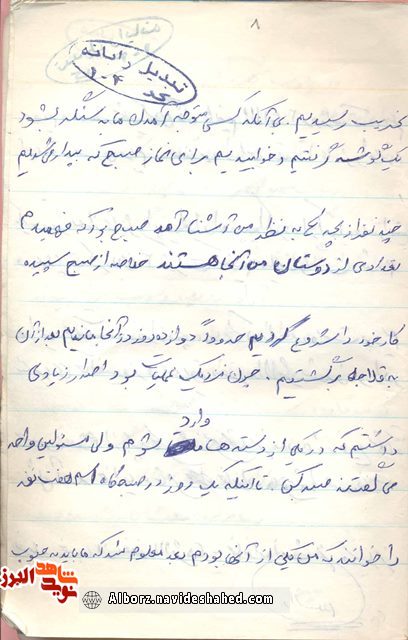 ۸
تبدیل رایانه
۱۰۴
بخدیت رسیدیم. بی آنکه کسی متوجه آمدن ما به سنگر بشود
یک گوشه گرفتیم و خوابیدیم برای نماز صبح که بیدار می شویم
چند نفر از بچه ها به نظر من آشنا آمد صبح بود که فهمیدم
تعدادی از دوستان من آنجا هستند خلاصه از صبح سپیده
کار خود را شروع کردیم حدوداً دوازده روز در آنجا ماندیم بعد از آن
به قلاجه برگشتیم. چون نزدیک عملیات بود و اصرار زیادی
وارد
داشتیم که در یکی از دسته ها بشوم ولی مسئولین واحد
می گفتند صبر کن. تا اینکه یک روز در صبحگاه اسم هفت نفر
را خواندند که من یکی از آنها بودم بعد معلوم شد که ما باید به جنوب
شاهد البرز
نوید
Alborz.navideshahed.com